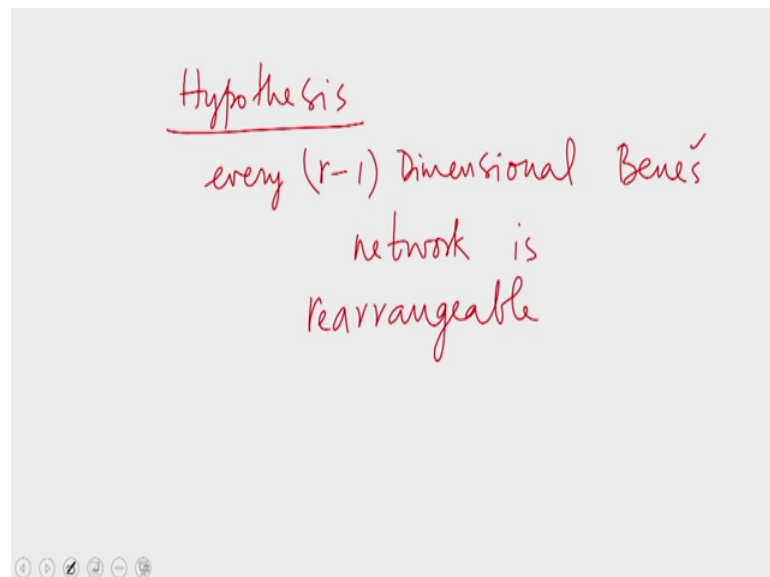 Hypothesis
every (r-1) Dimensional Beneš
network is
rearrangeable